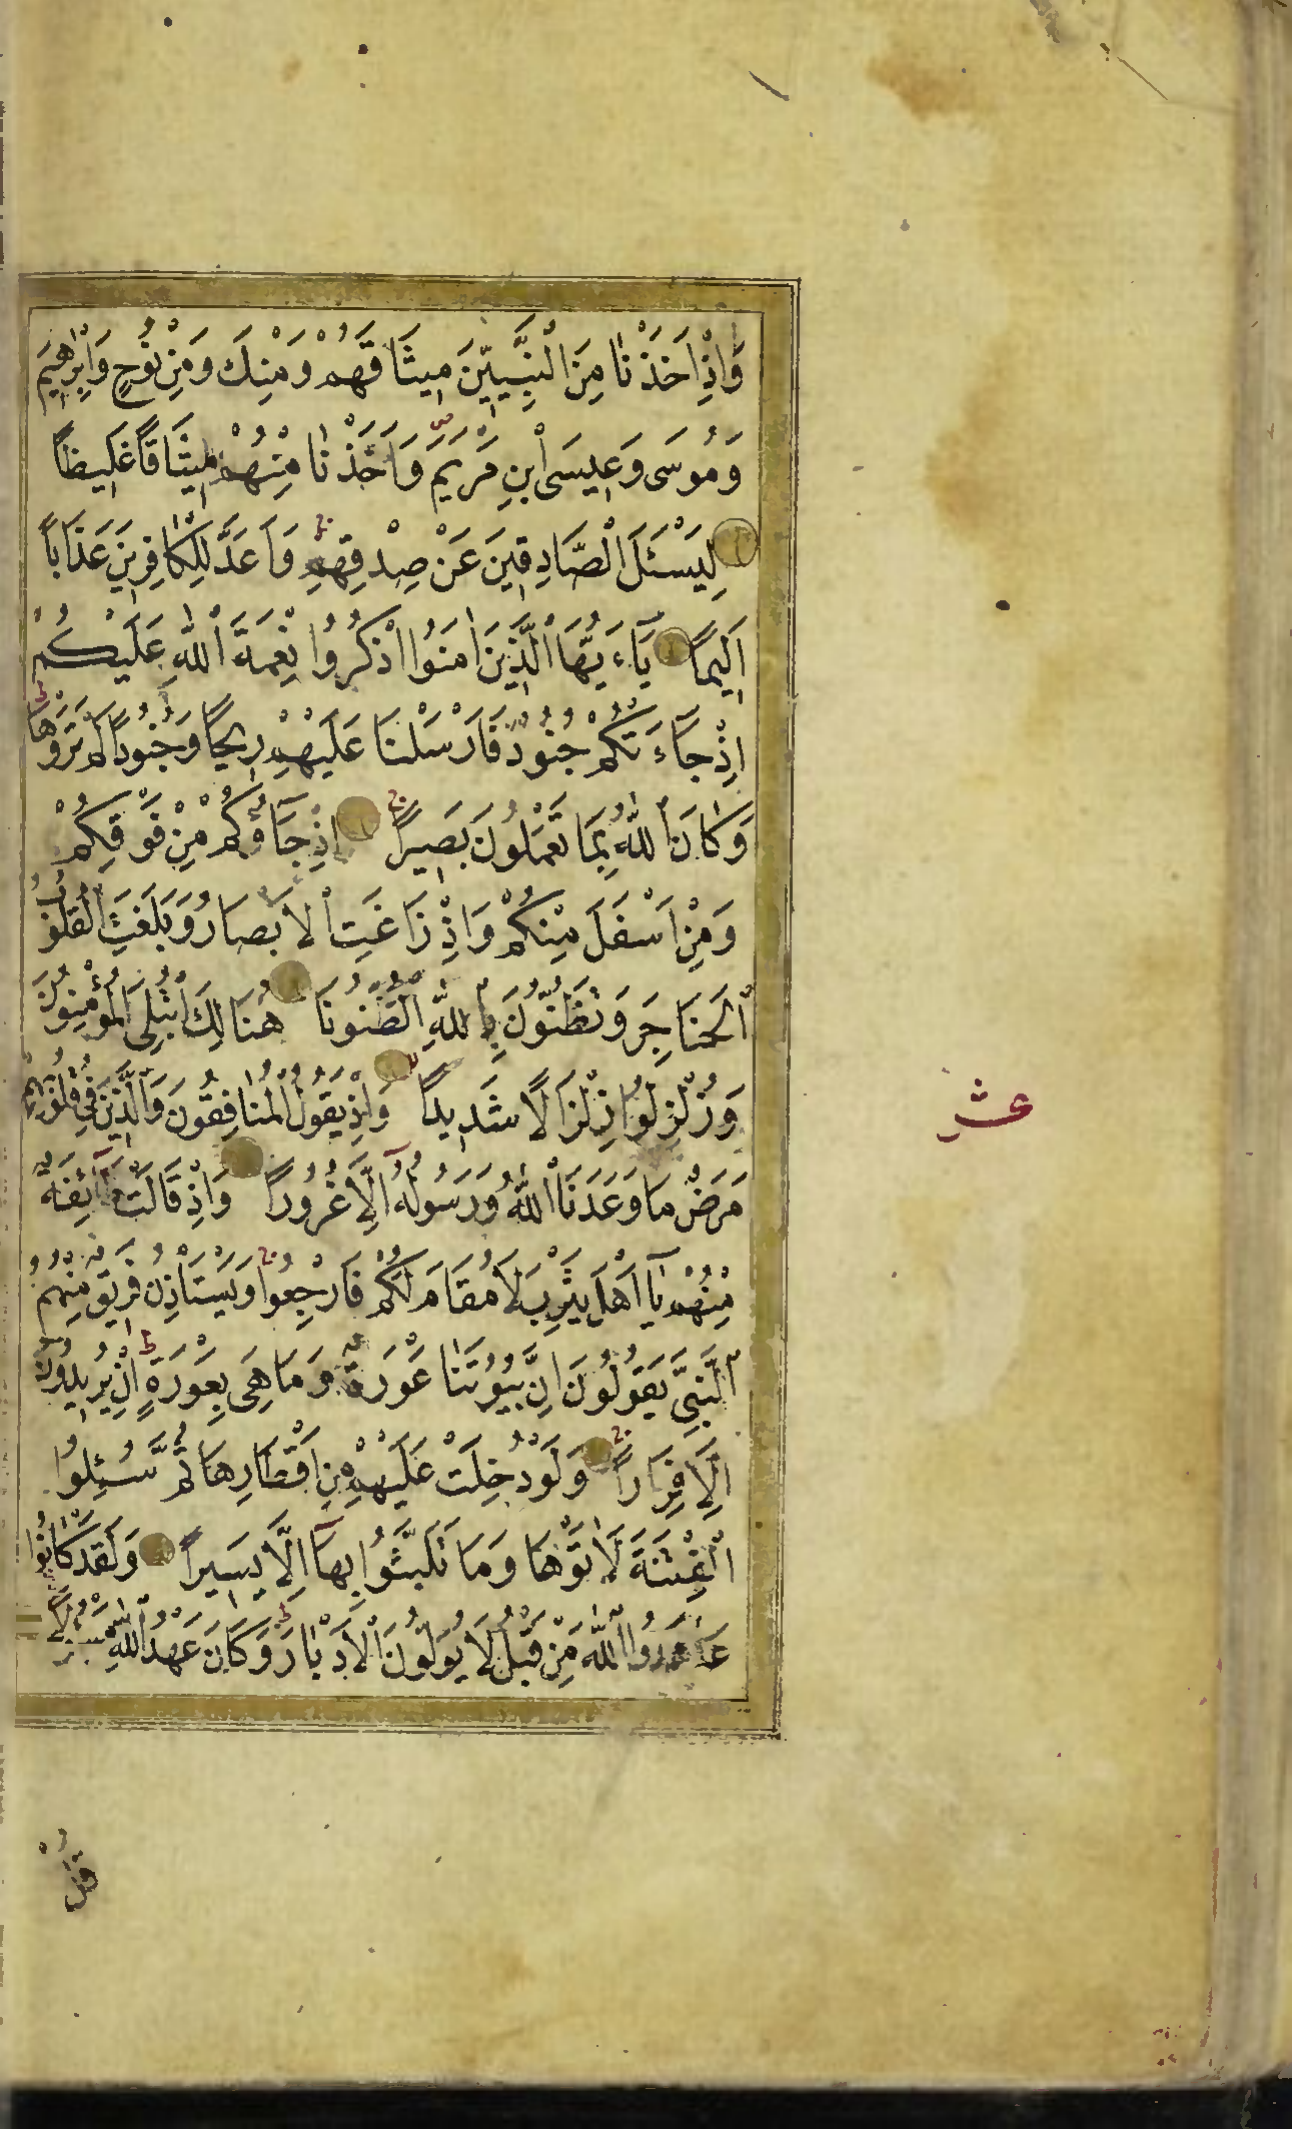 وَاِذْ اَخَذْنَا مِنَ النَّبِيّٖنَ مٖيثَاقَهُمْ وَمِنْكَ وَمِنْ نُوحٍ وَاِبْرٰهٖيمَ
وَمُوسَى وَعٖيسَى ابْنِ مَرْيَمَ وَاَخَذْنَا مِنْهُمْ مٖيثَاقًا غَلٖيظًا
لِيَسْئَلَ الصَّادِقٖينَ عَنْ صِدْقِهِمْ وَاَعَدَّ لِلْكَافِرٖينَ عَذَابًا
اَلٖيمًا يَآءَيُّهَا الَّذٖينَ اٰمَنُوا اذْكُرُوا نِعْمَةَ اللّٰهِ عَلَيْكُمْ
اِذْ جَآءَتْكُمْ جُنُودٌ فَاَرْسَلْنَا عَلَيْهِمْ رٖيحًا وَجُنُودًا لَمْ تَرَوْهَا
وَكَانَ اللّٰهُ بِمَا تَعْمَلُونَ بَصٖيرًا اِذْ جَآؤُكُمْ مِنْ فَوْقِكُمْ
وَمِنْ اَسْفَلَ مِنْكُمْ وَاِذْ زَاغَتِ الْاَبْصَارُ وَبَلَغَتِ الْقُلُوبُ
الْحَنَاجِرَ وَتَظُنُّونَ بِاللّٰهِ الظُّنُونَا هُنَالِكَ ابْتُلِىَ الْمُؤْمِنُونَ
وَزُلْزِلُوا زِلْزَالًا شَدٖيدًا وَاِذْ يَقُولُ الْمُنَافِقُونَ وَالَّذٖينَ فٖى قُلُوبِهِمْ
مَرَضٌ مَا وَعَدَنَا اللّٰهُ وَرَسُولُهُٓ اِلَّا غُرُورًا وَاِذْ قَالَتْ طَآئِفَةٌ
مِنْهُمْ يَآ اَهْلَ يَثْرِبَ لَا مُقَامَ لَكُمْ فَارْجِعُوا وَيَسْتَاْذِنُ فَرٖيقٌ مِنْهُمُ
النَّبِىَّ يَقُولُونَ اِنَّ بُيُوتَنَا عَوْرَةٌ وَمَا هِىَ بِعَوْرَةٍ اِنْ يُرٖيدُونَ
اِلَّا فِرَارًا وَلَوْ دُخِلَتْ عَلَيْهِمْ مِنْ اَقْطَارِهَا ثُمَّ سُئِلُوا
الْفِتْنَةَ لَاٰتَوْهَا وَمَا تَلَبَّثُوا بِهَآ اِلَّا يَسٖيرًا وَلَقَدْ كَانُوا
عَاهَدُوا اللّٰهَ مِنْ قَبْلُ لَا يُوَلُّونَ الْاَدْبَارَ وَكَانَ عَهْدُ اللّٰهِ مَسْؤُلًا
عشر
قُلْ